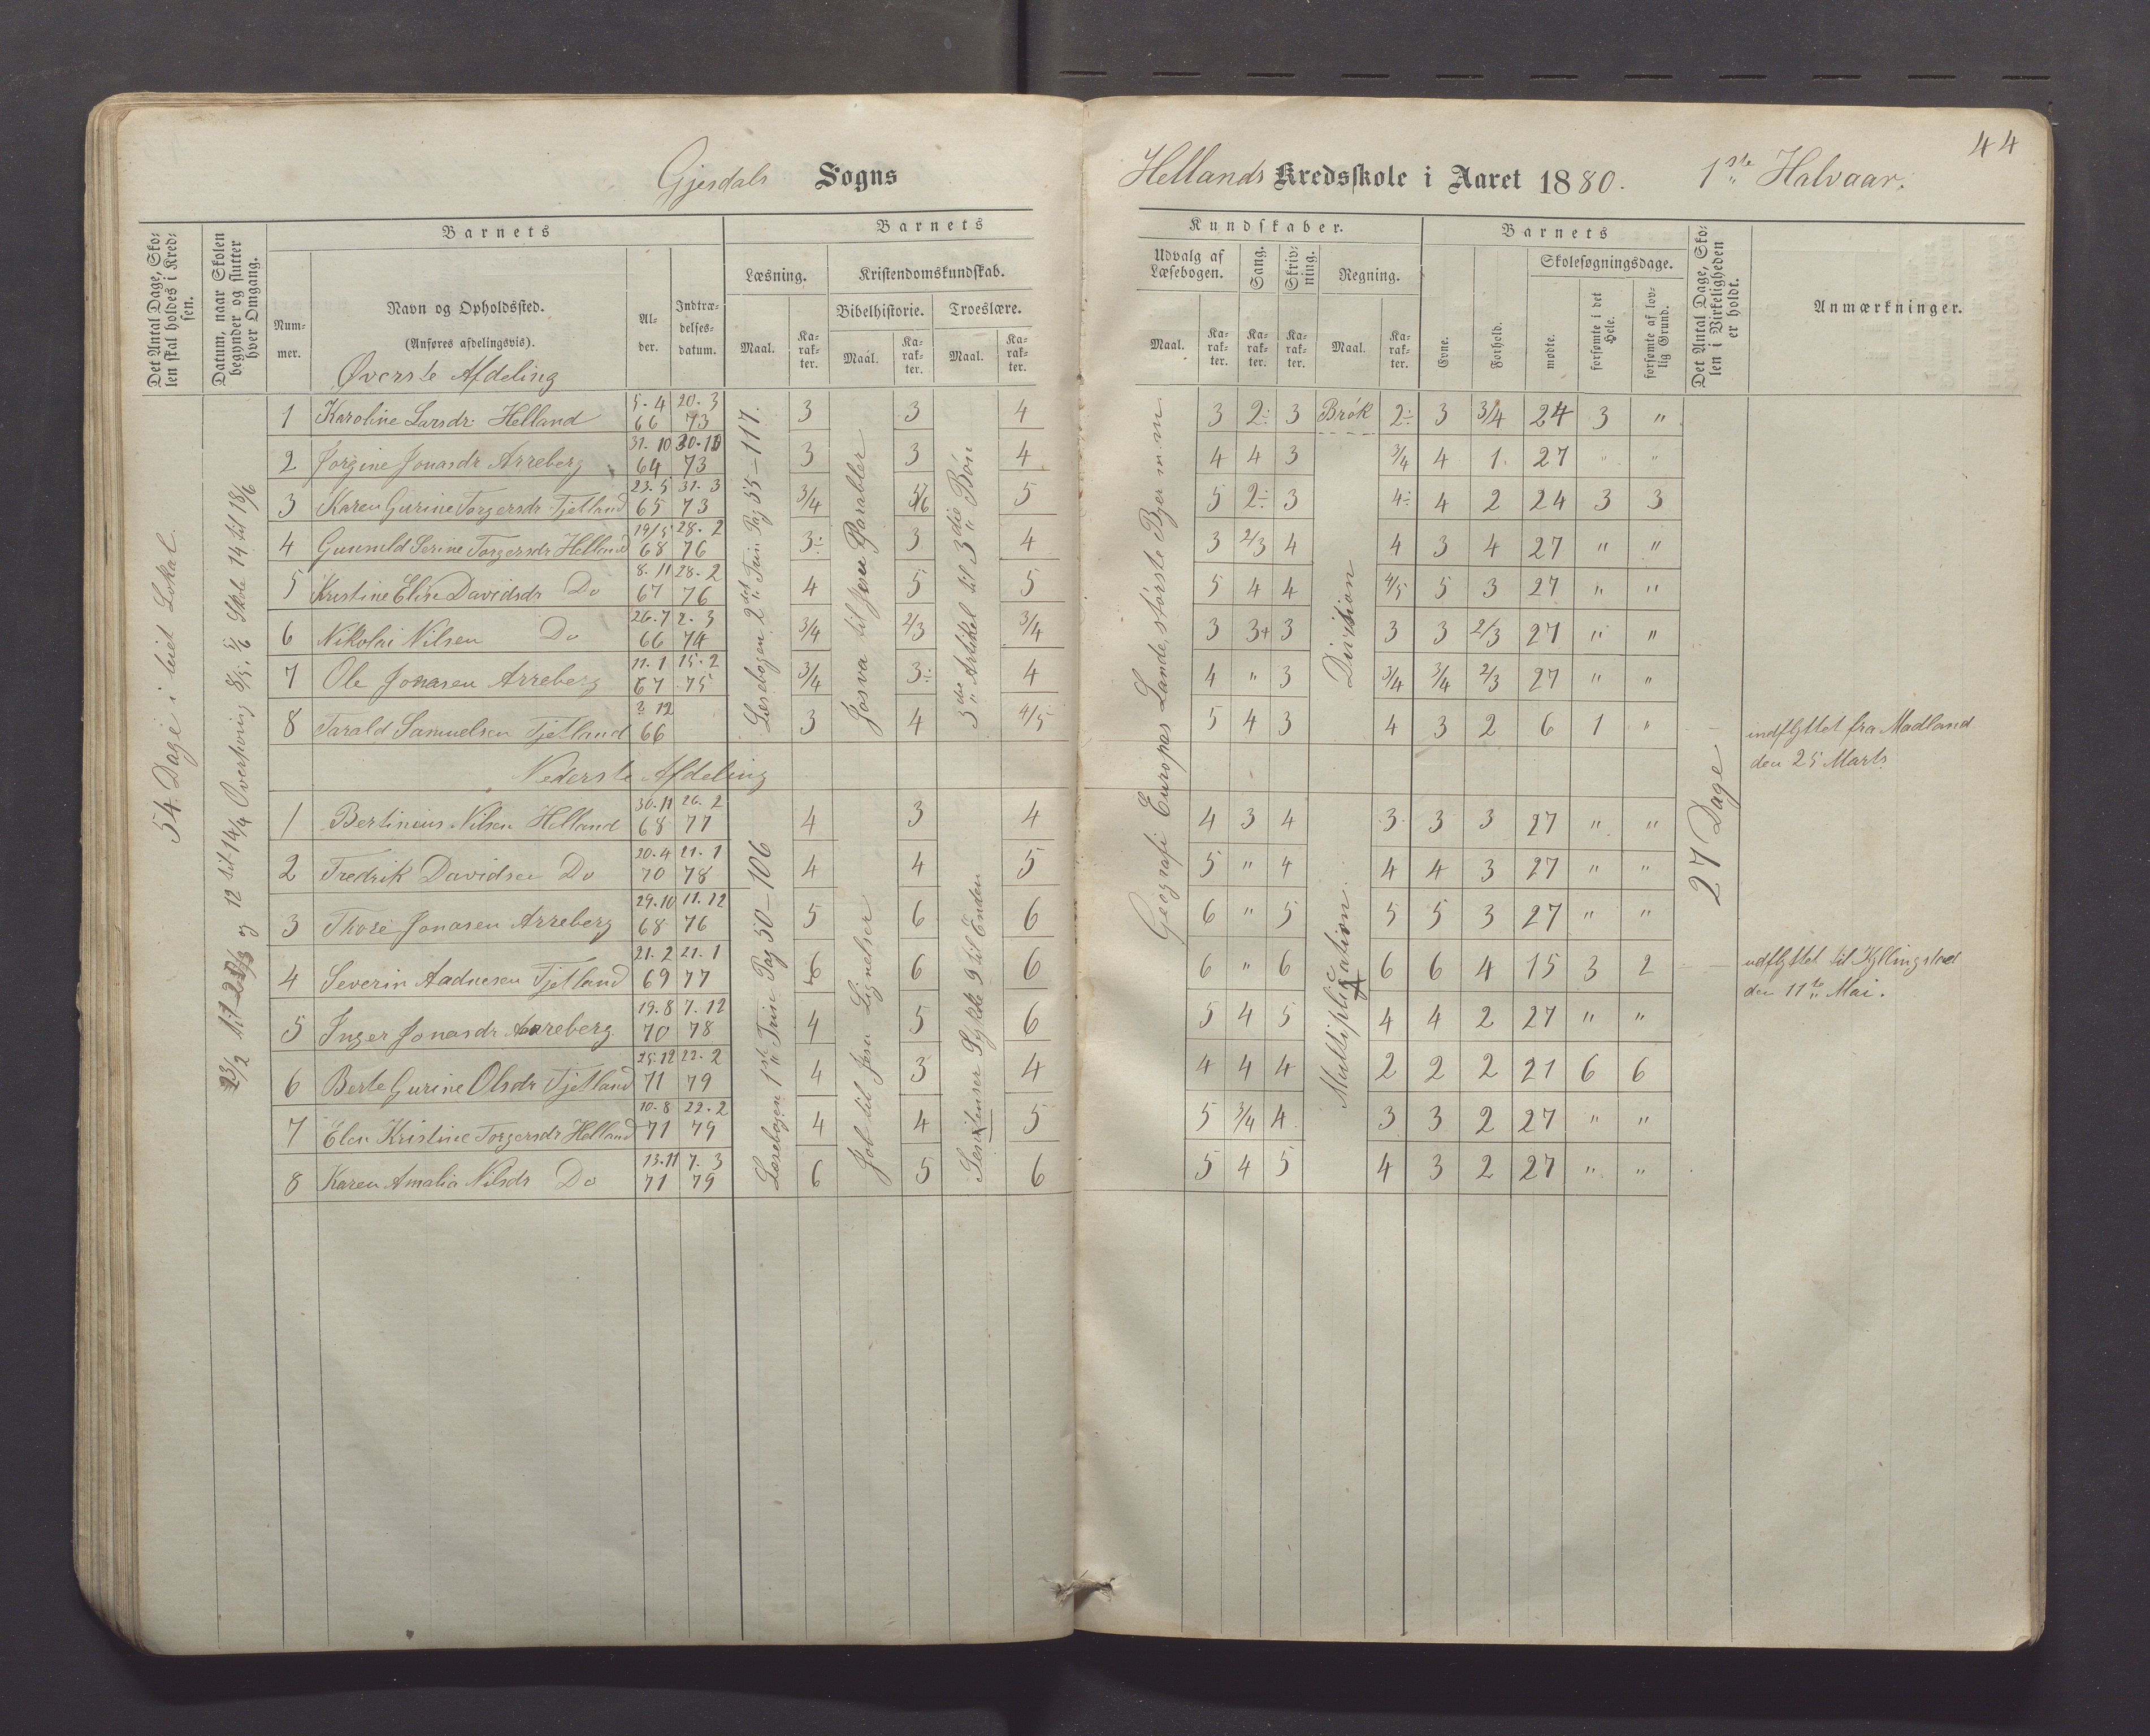 44
Gjesdals Sogns Hellands Kredsskole i Aaret 1880. 1ste Halvaar.
Det Antal Dage, Skolen skal holdes i Kredsen.
Datum, naar Skolen begynder og slutter hver Omgang.
Barnets
Nummer.
Navn og Opholdssted.
(Anføres afdelingsvis).
Alder.
Indtrædelsesdatum.
Barnets Kundskaber.
Læsning.
Maal. Karakter.
Kristendomskundskab.
Bibelhistorie. Troeslære.
Maal. Karakter. Maal. Karakter.
Udvalg af Læsebogen.
Maal. Karakter.
Sang. Karakter.
Skrivning. Karakter.
Regning.
Maal. Karakter.
Barnets
Evne. Forhold.
Skolesøgningsdage.
mødte. forsømte i det Hele. forsømte af lovlig Grund.
Det Antal Dage, Skolen i Virkeligheden er holdt.
Anmærkninger.
54 Dage i leiet Lokal.
Øverste Afdeling
Læsebogen 2det Trin Pag 55-117.
Josva til Jesu Parabler
3die Artikel til 3die Bøn
Geografi Europas Lande, største Byer m m
Brøk
Division
27 Dage
1 Karoline Larsdr. Helland 5-4 66 20-3 73 3 3 4 3 2÷ 3 2÷ 3 3/4 24 3 "
2 Jorgine Jonasdr Arreberg 31-10 64 73 3 3 4 4 4 3 3/4 4 1 27 " "
3 Karen Gurine Torgersdr Tjetland 23-5 65 31-3 73 3/4 5 5 2÷ 3 4÷ 4 2 24 3 3
4 Gunnuld Serine Torgersdr Helland 19/5 68 28-2 76 3÷ 3 4 3 2/3 4 4 3 4 27 " "
5 Kristine Elise Davidsdr Do 8-11 67 28-2 76 4 5 5 5 4 4 4/5 5 3 27 " "
6 Nikolai Nilsen Do 26-7 66 2-3 74 3/4 2/3 3/4 3 3+ 3 3 3 2/3 27 " "
7 Ole Jonasen Arreberg 11-1 67 15-2 75 3/4 3÷ 4 4 " 3 3/4 3/4 2/3 27 " "
8 Tarald Samuelsen Tjetland 3 12 66 3 4 4/5 5 4 3 4 3 2 6 1 " indflyttet fra Madland
den 25 Marts
Nederste Afdeling
Læsebogen 1ste Trin Pag 50-106
Job til Jesu Lignelser
Stykke 9 til Enden
Multiplication.
1 Bertinius Nilsen Helland 30-11 68 26-2 77 4 3 4 4 3 4 3 3 3 27 " "
2 Fredrik Davidsen Do 20-4 70 21-1 78 4 4 5 5 " 4 4 4 3 27 " "
3 Thore Jonasen Arreberg 29-10 68 11-12 76 5 6 6 6 " 5 5 5 3 27 " "
4 Severin Aadnesen Tjetland 21-2 69 21-1 77 6 6 6 6 " 6 6 6 4 15 3 2 udflyttet til Kyllingstad
den 11te Mai.
5 Inger Jonasdr Arreberg 19-8 70 7-12 78 4 5 6 5 4 5 4 4 2 27 " "
6 Berte Gurine Olsdr Tjetland 25-12 71 22-2 79 4 3 4 4 4 4 2 2 2 21 6 6
7 Elen Kristine Torgersdr Helland 10-8 71 22-2 79 4 4 5 5 3/4 4 3 3 2 27 " "
8 Karen Amalia Nilsdr Do 13-11 71 7-3 79 6 5 6 5 4 5 4 3 2 27 " "